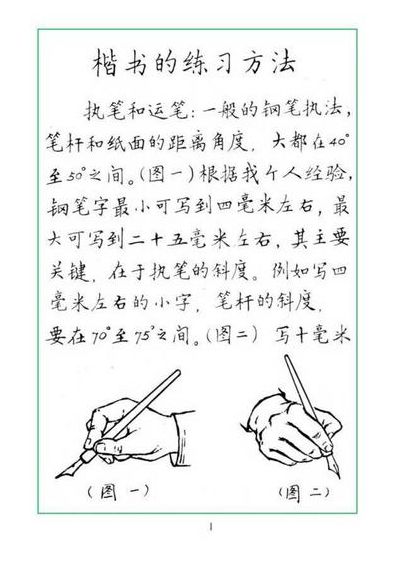 楷书的练习方法
执笔和运笔:一般的钢笔执法,
笔杆和纸面的距离角度,大都在40°
至50°之间。(图一)根据我个人经验,
钢笔字最小可写到四毫米左右,最
大可写到二十五毫米左右,其主要
关键,在于执笔的斜度。例如写四
毫米左右的小字,笔杆的斜度,
要在70°至75°之间。(图二)写十毫米
(图一)
(图二)
1